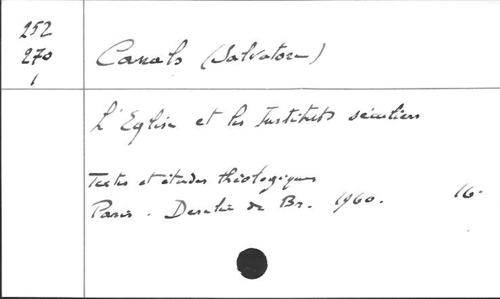 252
270
1
Canals (Salvatore)
L'Eglise et les Instituts séculiers
Textes et études théologiques
Paris. Desclée de Br. 1960. 16.